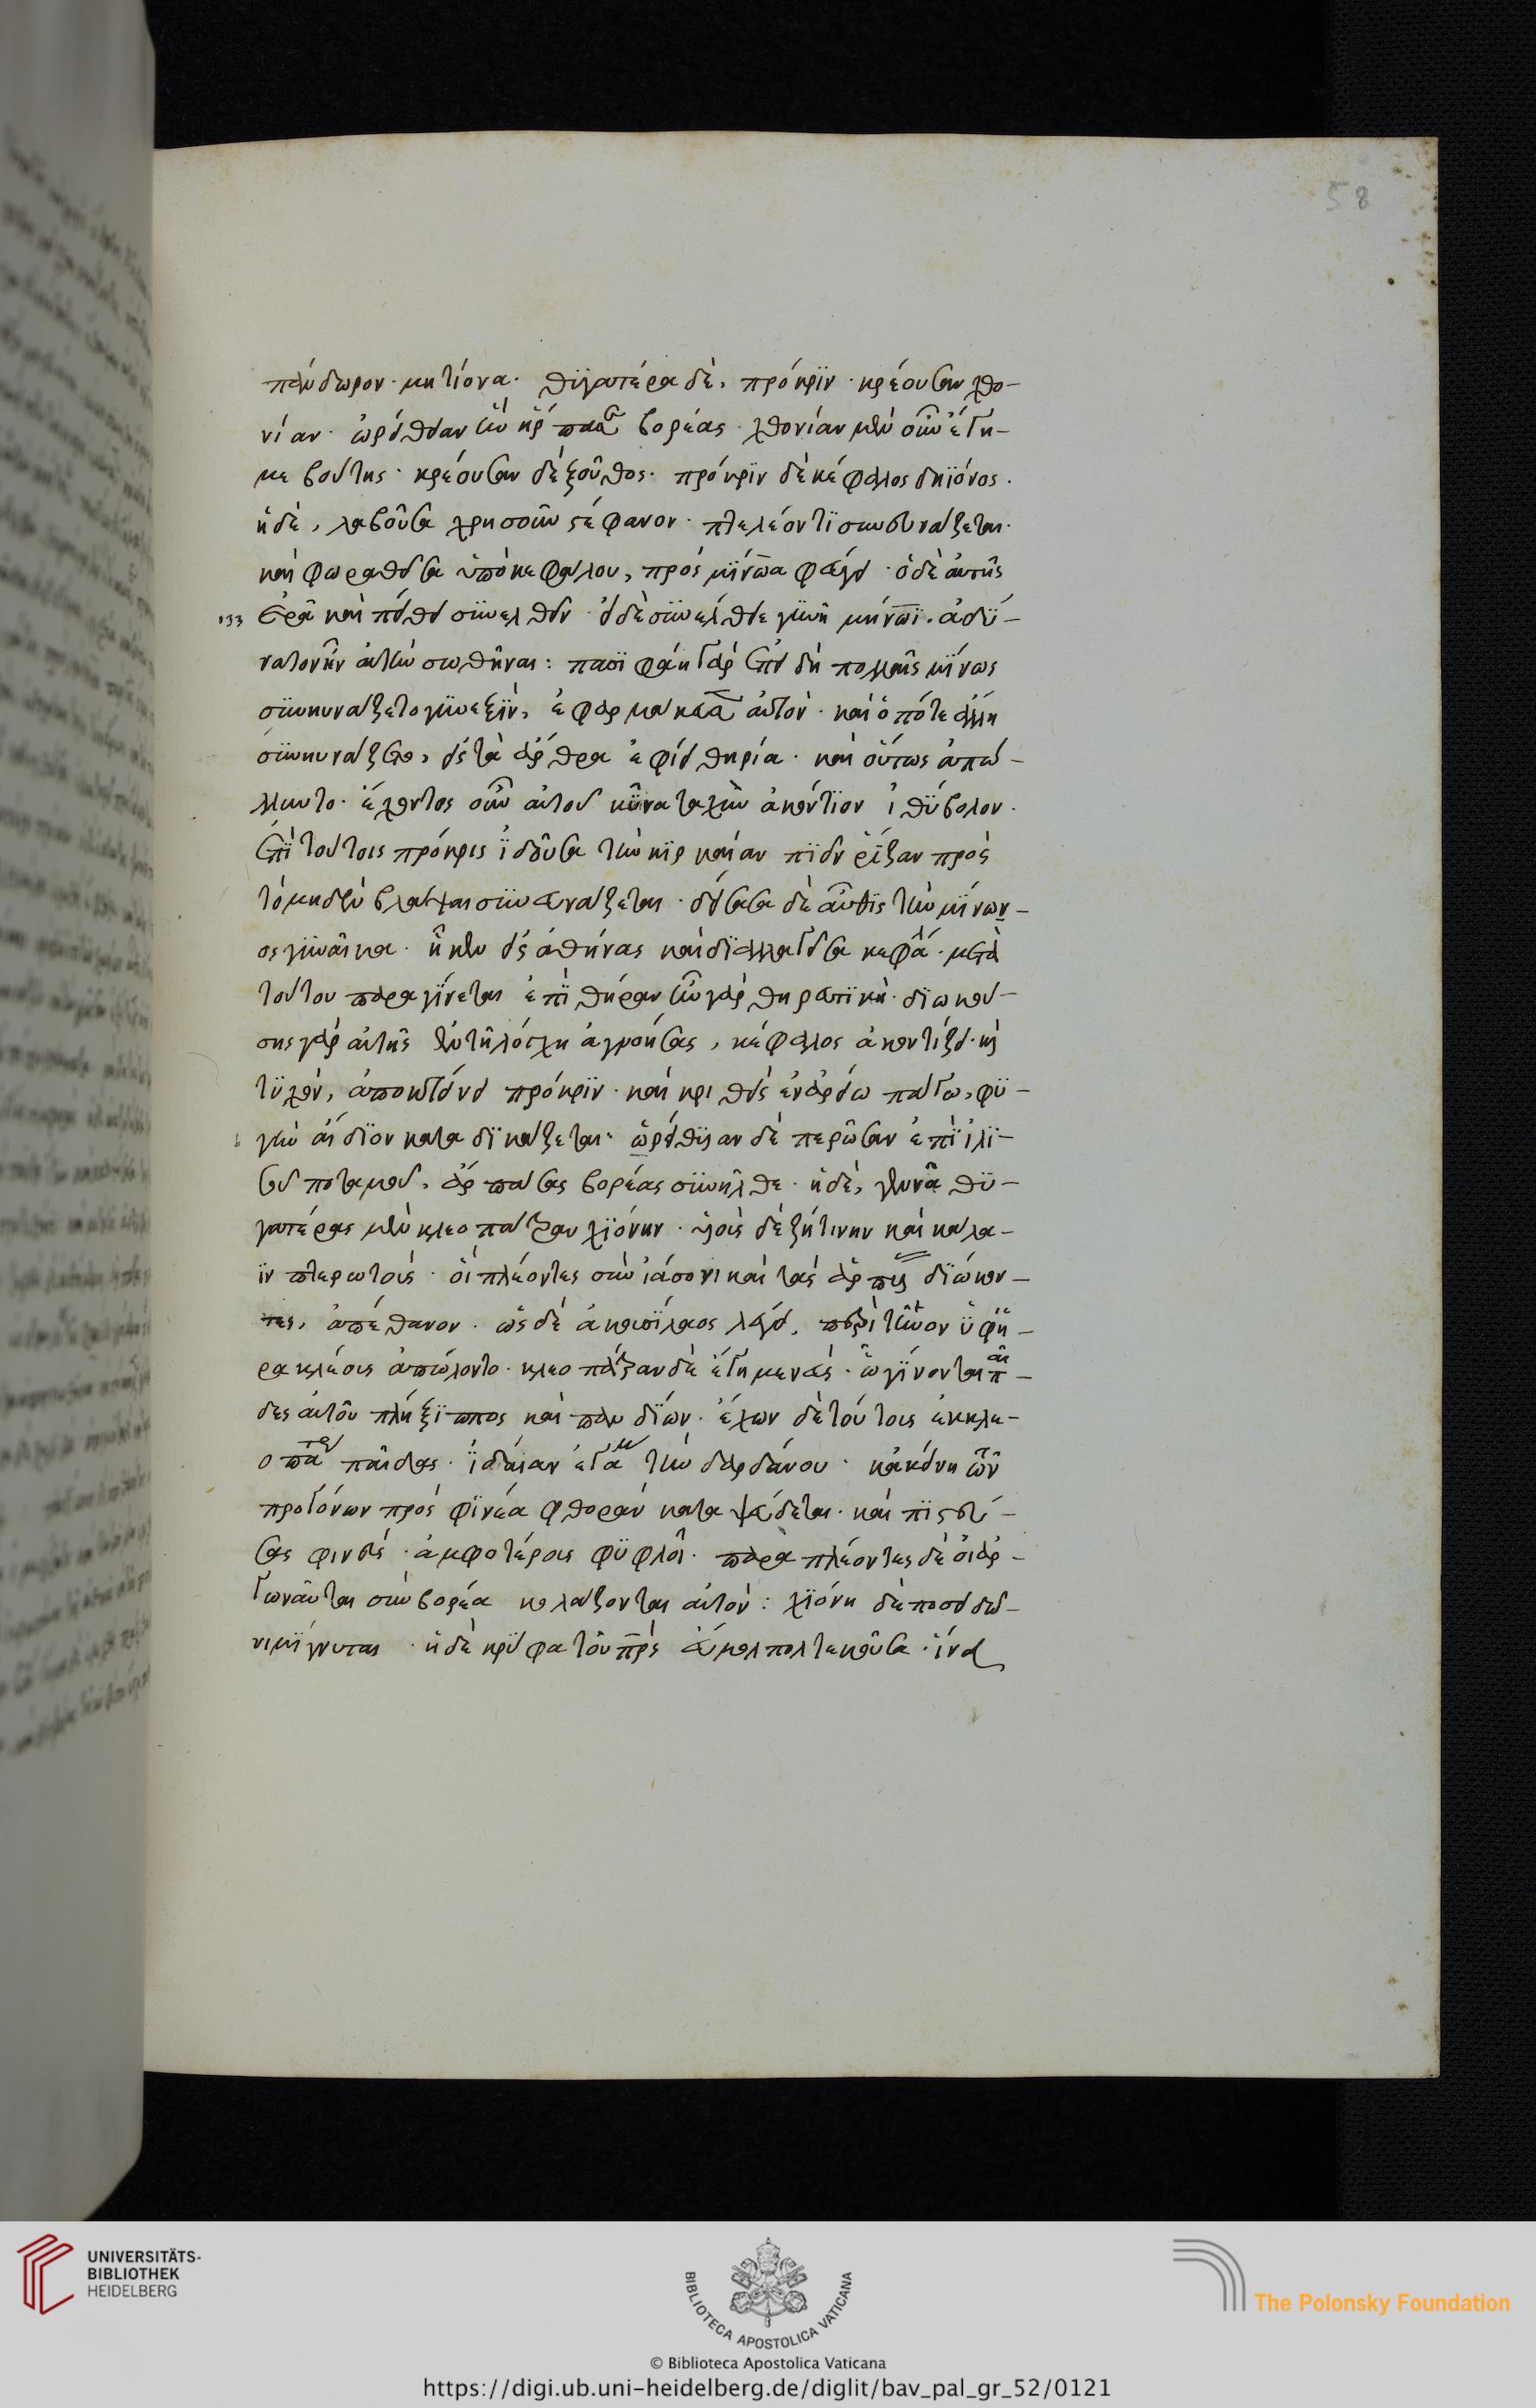 58
πάνδωρον· μητίονα· θϋγατέρα δὲ, πρόκρϊν· κρέουσαν χθο-
νίαν· ὠρείθειαν ἣν ἥρπασε βορέας· χθονίαν μὲν οὖν ἔγη-
με βούτης· κρέουσαν δὲ ξοῦθος· πρόκρϊν δὲ κέφαλος δηϊόνος·
ἡ δὲ, λαβοῦσα χρυσοῦν στέφανον· πτελέοντϊ συνευνάζεται·
καὶ φωραθεῖσα ὑπὸ κεφάλου, πρὸς μίνωα φεύγει· ὁ δὲ αὐτῆς
133 ἐρᾶ καὶ πείθει συνελθεῖν· εἰ δὲ συνέλθει γυνὴ μίνωϊ. ἀδύ-
νατον ἦν αὐτὴν σωθῆναι: πασϊφάη γὰρ ἐπεὶ δὴ πολλαῖς μίνως
συνηυνάζετο γυναιξὶν, ἐφαρμάκευσεν αὐτὸν· καὶ ὁπότε ἄλλη
συνηυνάζετο, εἰς τὰ ἄρθρα ἐφίει θηρία· καὶ οὕτως ἀπώ-
λλυντο· ἔχοντος οὖν αὐτοῦ κύνα ταχὺν ἀκόντϊον ἰθϋβόλον·
ἐπὶ τούτοις πρόκρις ϊδοῦσα τὴν κϊρκαίαν πϊεῖν ῥίζαν πρὸς
τὸ μηδὲν βλάψαι συνευνάζεται· δείσασα δὲ αὖθις τὴν μίνων-
ος γυναῖκα· ἧκεν εἰς ἀθήνας καὶ δϊαλλαγεῖσα κεφάλ· μετὰ
τούτου παραγίνεται ἐπὶ θήραν ἦν γὰρ θηρευτϊκὴ· δϊωκού-
σης γὰρ αὐτῆς ἐν τῇ λόχμη ἀγνοήσας, κέφαλος ἀκοντίζει· καὶ
τϋχὼν, ἀποκτείνει πρόκρϊν· καὶ κριθεὶς ἐν ἀρείω πάγω, φϋ-
γὴν ἀΐδϊον καταδϊκάζεται· ὠρείθϋιαν δὲ περῶσαν ἐπὶ ἰλϊ-
σοῦ ποταμοῦ, ἁρπάσας βορέας συνῆλθε· ἡ δὲ, γεννᾶ θϋ-
γατέρας μὲν κλεοπάτραν χϊόνην· υἱοὺς δὲ ζήτινην καὶ κάλα-
ϊν πτερωτοὺς· οἳ πλέοντες σὺν ἰάσονι καὶ τὰς ἁρπυίας δϊώκον-
τες, ἀπέθανον· ὡς δὲ ἀκουσϊλαος λέγει, περὶ τῆνον ὑφ' ἡ-
ρακλέους ἀπώλοντο· κλεοπάτραν δὲ ἔγημε νεὺς· ὧ γίνονται παῖ-
δες αὐτοῦ πλήξϊππος καὶ πανδίων· ἔχων δὲ τούτοις ἐκ κλε-
οπάτρ παῖδας· ϊδαίαν ἐγάμ τὴν δαρδάνου· κἀκείνη τῶν
προγόνων πρὸς φϊνέα φθορὰν καταψεύδεται· καὶ πϊστεύ-
σας φινεὺς· ἀμφοτέρους φϋφλοῖ· παραπλέοντες δὲ οἱ ἀρ-
γωναῦται σὺν βορέα κολάζονται αὐτόν: χϊόνη δὲ ποσειδῶ-
νι μίγνυται· ἡ δὲ κρύφα τοῦ πρς εὔμολπον τεκοῦσα· ἵνα
UNIVERSITÄTS-
BIBLIOTHEK
HEIDELBERG
BIBLIOTECA APOSTOLICA VATICANA
© Biblioteca Apostolica Vaticana
The Polonsky Foundation
https://digi.ub.uni-heidelberg.de/diglit/bav_pal_gr_52/0121